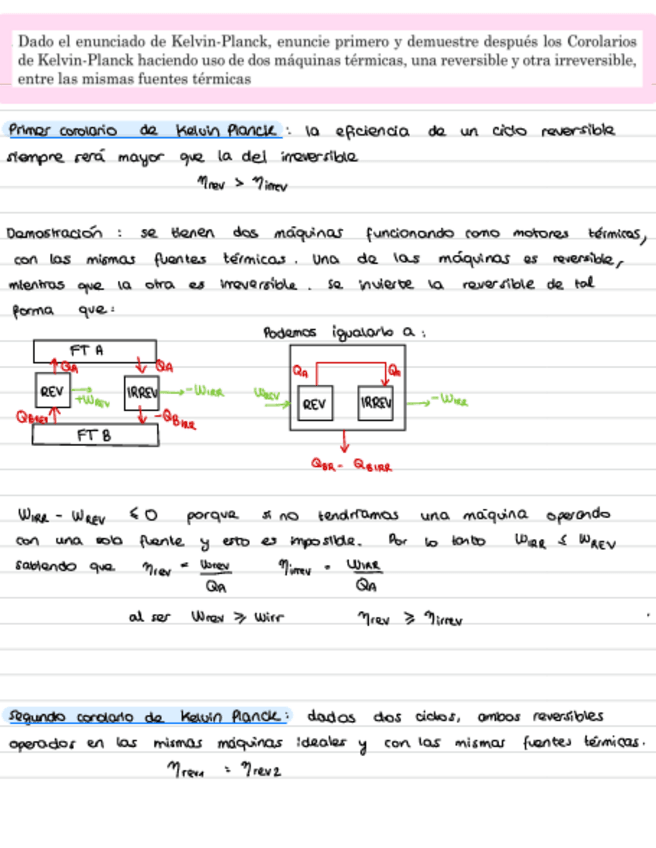 Dado el enunciado de Kelvin-Planck, enuncie primero y demuestre después los Corolarios
de Kelvin-Planck haciendo uso de dos máquinas térmicas, una reversible y otra irreversible,
entre las mismas fuentes térmicas
Primer corolario de Kelvin Planck: la eficiencia de un ciclo reversible
siempre será mayor que la del irreversible
ηrev > ηirrev
Demostración : se tienen dos máquinas funcionando como motores térmicos,
con las mismas fuentes térmicas. Una de las máquinas es reversible,
mientras que la otra es irreversible. Se invierte la reversible de tal
forma que:
Podemos igualarlo a :
FT A
QA QA
REV +WREV IRREV -WIRR
QBREV -QBIRR
FT B
QA QA
WREV REV IRREV -WIRR
QBR - QBIRR
WIRR - WREV ≤ 0 porque si no tendríamos una máquina operando
con una sola fuente y esto es imposible. Por lo tanto WIRR ≤ WREV
sabiendo que ηrev = Wrev/QA ηirrev = WIRR/QA
al ser Wrev ≥ Wirr ηrev ≥ ηirrev
Segundo corolario de Kelvin Planck: dados dos ciclos, ambos reversibles
operados en las mismas máquinas ideales y con las mismas fuentes térmicas.
ηrev1 = ηrev2